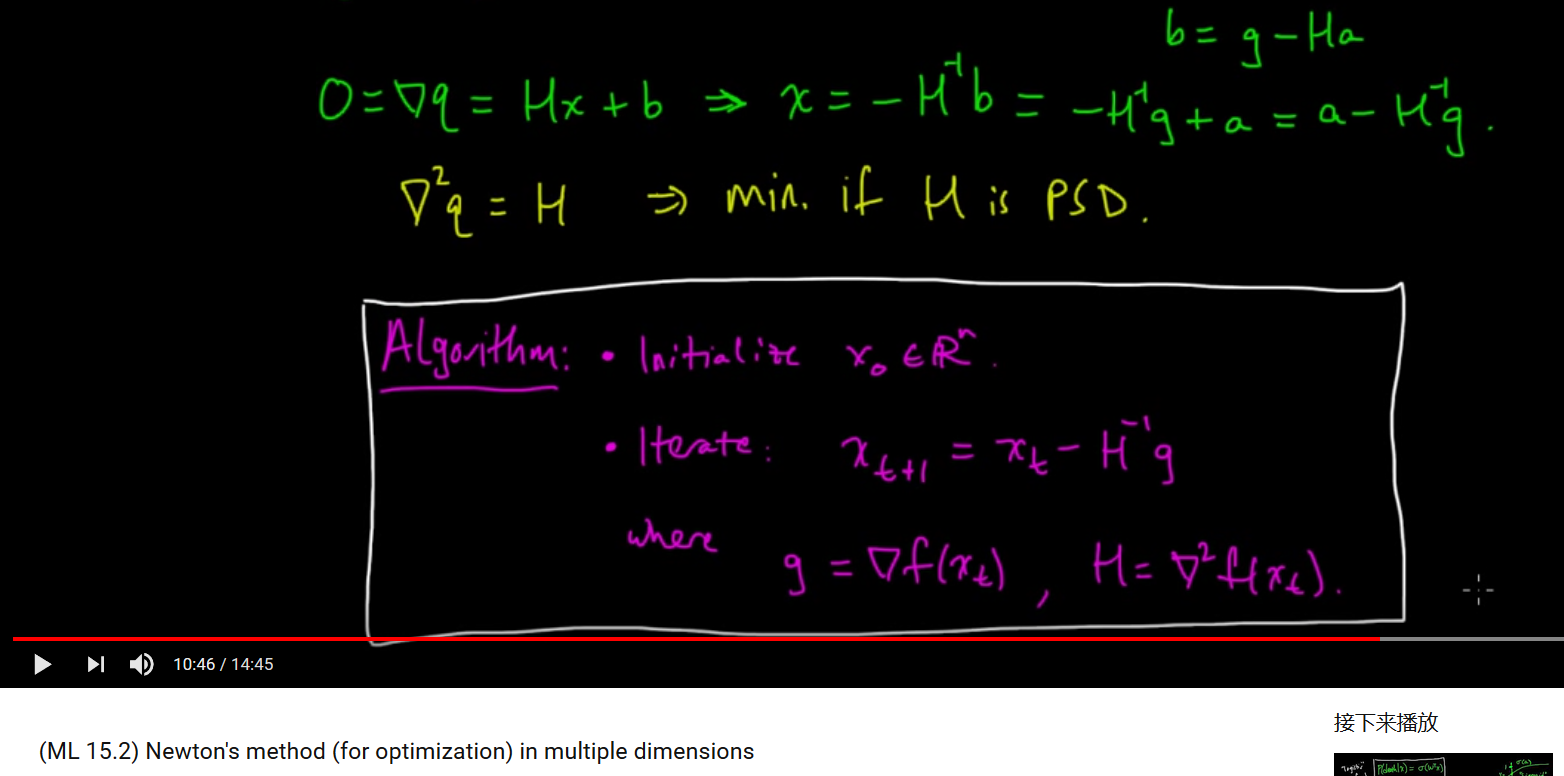 b = g - Ha
0 = ∇q = Hx + b ⇒ x = -H⁻¹b = -H⁻¹g + a = a - H⁻¹g.
∇²q = H ⇒ min. if H is PSD.
Algorithm: • Initialize x₀ ∈ ℝⁿ.
• Iterate: xₜ₊₁ = xₜ - H⁻¹g
where g = ∇f(xₜ), H = ∇²f(xₜ).
10:46 / 14:45
接下来播放
(ML 15.2) Newton's method (for optimization) in multiple dimensions